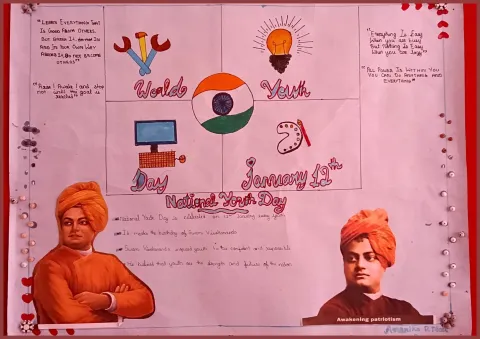 "Learn Everything That
Is Good From Others,
But Bring It, Absorb It
And In Your Own Way
Do Not Become
Others"
"Arise! Awake! and stop
not until the goal is
reached"
"Everything Is Easy
When you are busy
But Nothing Is Easy
When you are lazy"
"All Power Is Within You
You Can Do Anything And
Everything"
World
Youth
Day
January 12th
National Youth Day
National Youth Day is celebrated on 12th January every year
It marks the birthday of Swami Vivekananda
Swami Vivekananda inspired youth to be confident and responsible
He believed that youth are the strength and future of the nation
Awakening patriotism